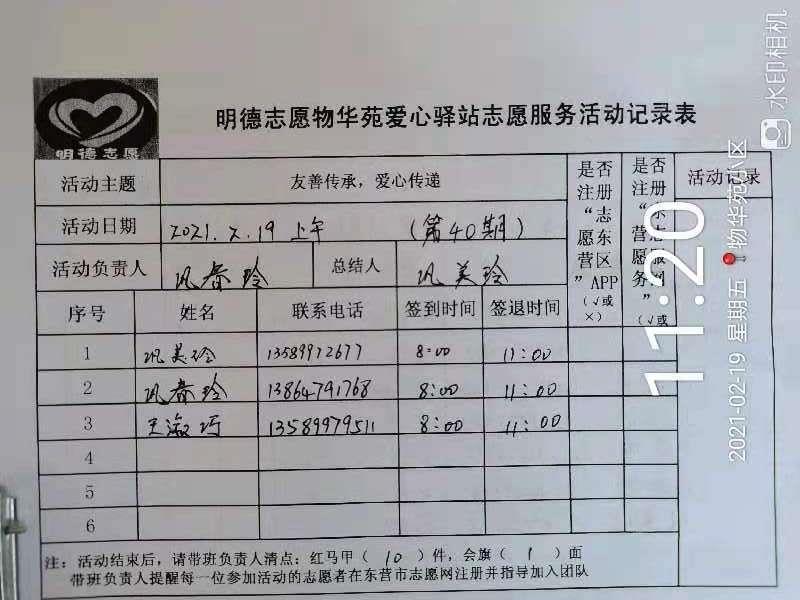 明德志愿物华苑爱心驿站志愿服务活动记录表
明德志愿
活动主题 友善传承，爱心传递
是否注册“志愿东营区”APP（√或×）
是否注册“东营志愿服务网”（√或
活动记录
活动日期 2021.2.19 上午 （第40期）
活动负责人 巩春玲 总结人 巩美玲
序号 姓名 联系电话 签到时间 签退时间
1 巩美玲 13589972677 8:00 11:00
2 巩春玲 13864791768 8:00 11:00
3 王淑巧 13589979511 8:00 11:00
4
5
6
注：活动结束后，请带班负责人清点：红马甲（ 10 ）件，会旗（ 1 ）面
带班负责人提醒每一位参加活动的志愿者在东营市志愿网注册并指导加入团队
11:20
2021-02-19 星期五 物华苑小区
水印相机